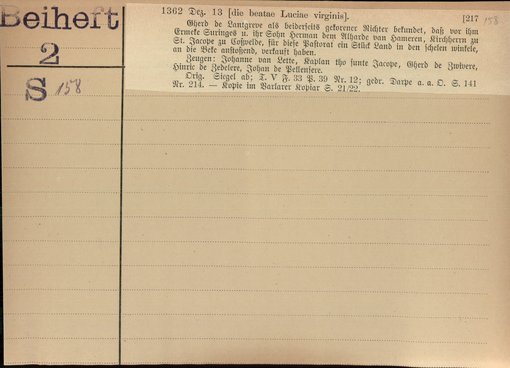 Beiheft
2
S 158
1362 Dez. 13 [die beatae Lucine virginis]. [217 158
Gherd de Lantgreve als beiderseits gekorener Richter bekundet, daß vor ihm
Ermeke Suringes u. ihr Sohn Herman dem Alharde van Hameren, Kirchherrn zu
St. Jacope zu Cosvelde, für diese Pastorat ein Stück Land in den schelen winkele,
an die Beke anstoßend, verkauft haben.
Zeugen: Johanne van Lette, Kaplan tho sunte Jacope, Gherd de Zwivere,
Hinric de Zedelere, Johan de Pellensere.
Orig. Siegel ab; T. V F. 33 P. 39 Nr. 12; gedr. Darpe a. a. O. S. 141
Nr. 214. — Kopie im Varlarer Kopiar S. 21/22.